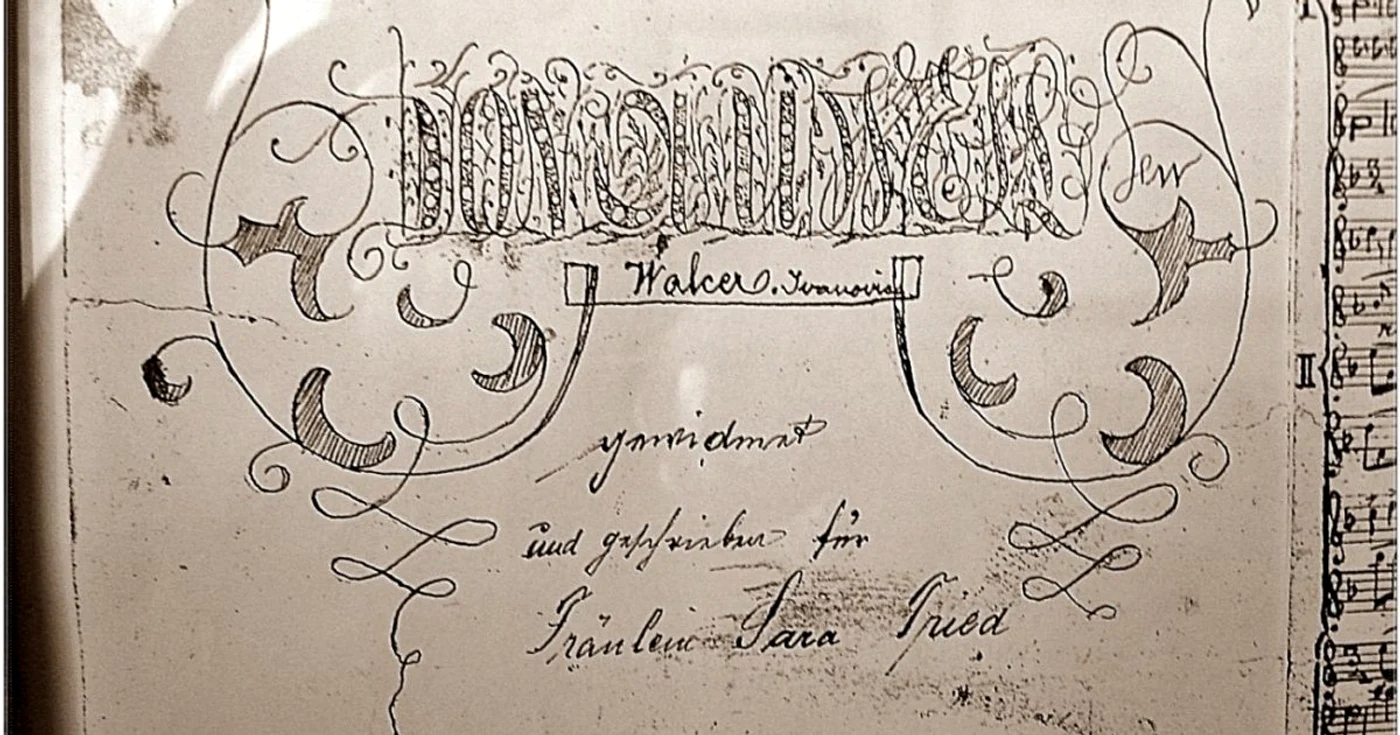 I
Walcer. Ivanovici
II
gewidmet
und geschrieben für
Fräulein Sara Fried